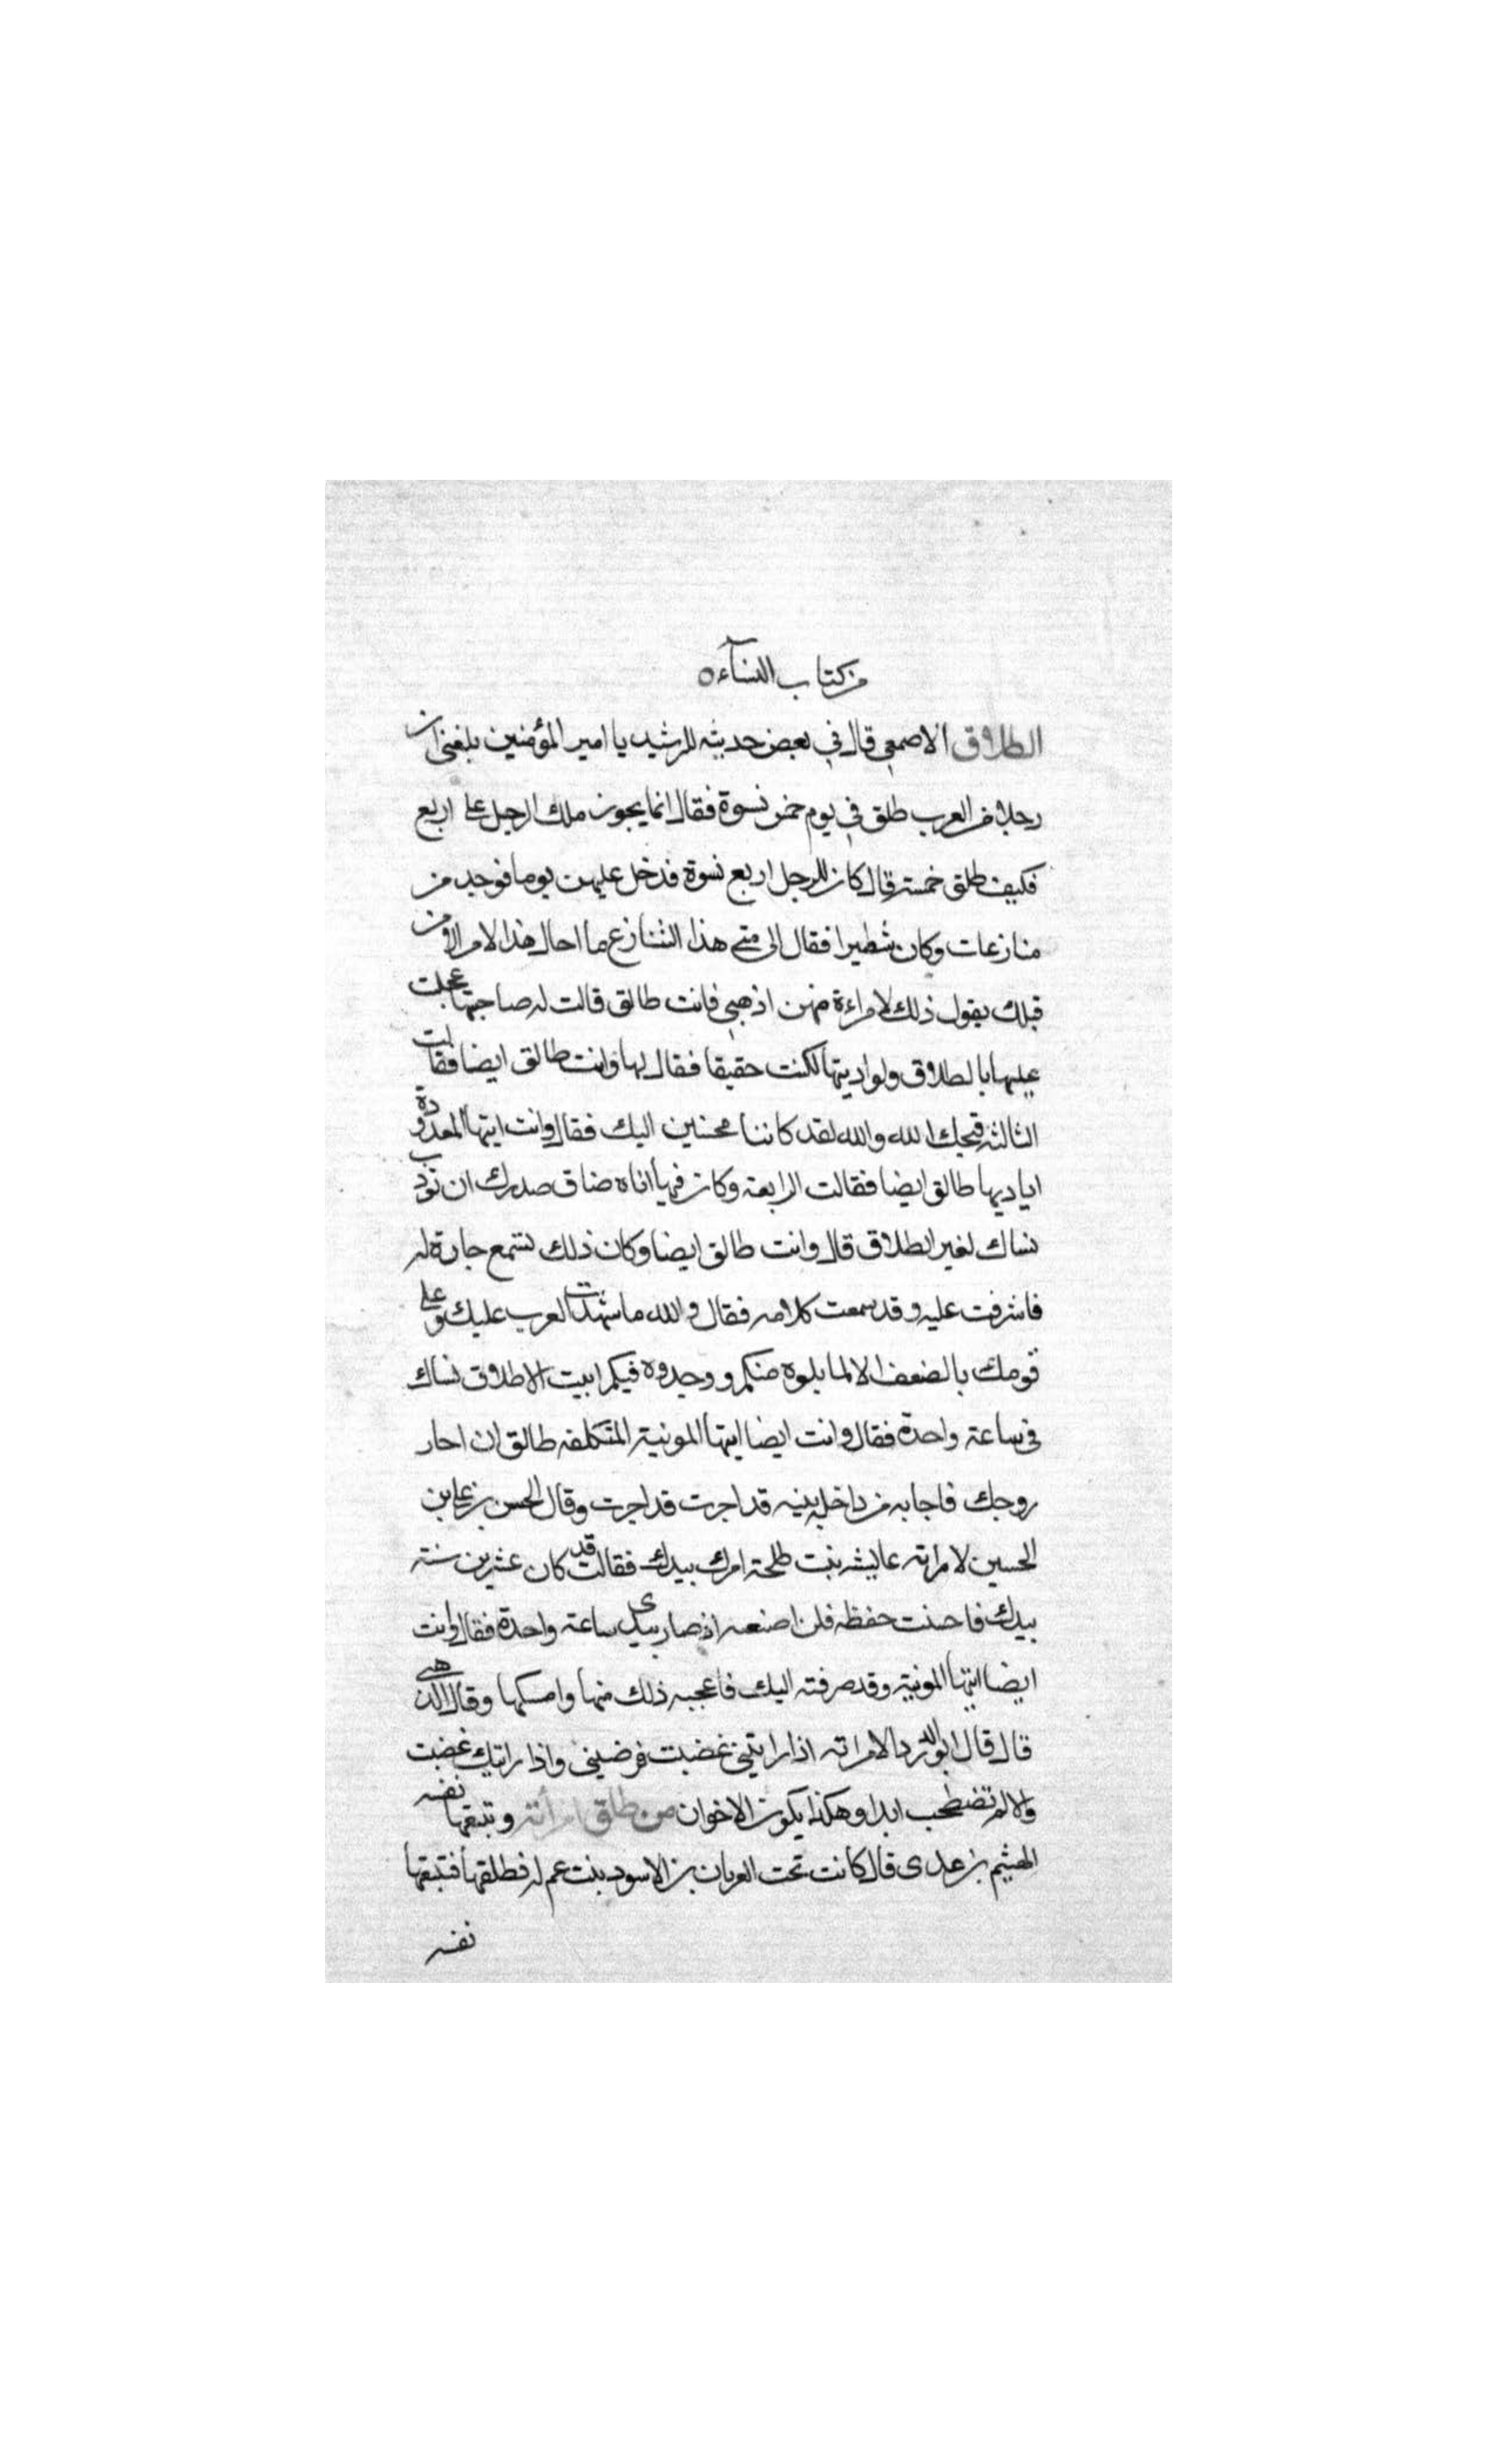 من كتاب النسآء ه
الطلاق الاصمعي قال في بعض حديثه للرشيد يا امير المؤمنين بلغني ان
رجلا من العرب طلق في يوم خمس نسوة فقال انما يجوز ملك الرجل على اربع
فكيف طلق خمسة قال كان للرجل اربع نسوة فدخل عليهن يوما فوجد من
منازعات وكان شطيرا فقال الى متى هذا التنازع ما احال هذا الامر الا من
قبلك يقول ذلك لامراءة منهن اذهبي فانت طالق قالت له صاحبتها عجلت
عليها بالطلاق ولو اديتها لكنت حقيقا فقال لها وانت طالق ايضا فقالت
الثالثة قبحك الله والله لقد كانتا محسنين اليك فقال وانت ايتها المعدودة
اياديها طالق ايضا فقالت الرابعة وكان فيها أناه ضاق صدرك ان تودب
نساك لغير الطلاق قال وانت طالق ايضا وكان ذلك تسمع جارة له
فاشرفت عليه وقد سمعت كلامه فقال والله ما شهدت العرب عليك وعلى
قومك بالضعف الا لما بلوه منكم ووجدوه فيكم ابيت الا طلاق نساك
في ساعة واحدة فقال وانت ايضا ايتها المونية المتكلفه طالق ان اجار
زوجك فاجابه من داخل بيته قد اجرت قد اجرت وقال الحسن بن علي بن
الحسين لامراته عايشه بنت طلحة امرك بيدك فقالت قد كان عشرين سنة
بيدك فاحسنت حفظه فلن اضيعه اذ صار بيدي ساعة واحدة فقال وانت
ايضا ايتها المونبة وقد صرفته اليك فاعجبه ذلك منها وامسكها وقال الذهبي
قال قال ابو الدردا لامراته اذا رايتني غضبت فرضيني واذا رايتك غضبت
والا لم تضطحب ابدا وهكذا يكون الاخوان من طلق امرأته وتبعها نفسه
الهيثم بن عدى قال كانت تحت العريان بن الاسود بنت عم له فطلقها فتبعتها
نفسه